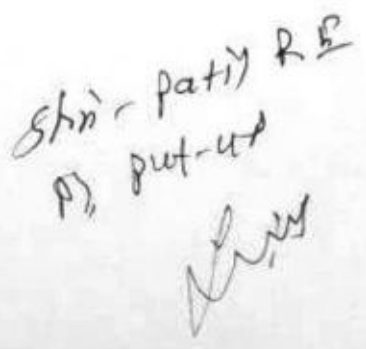 Shri - Patil R E
Pl, put-up